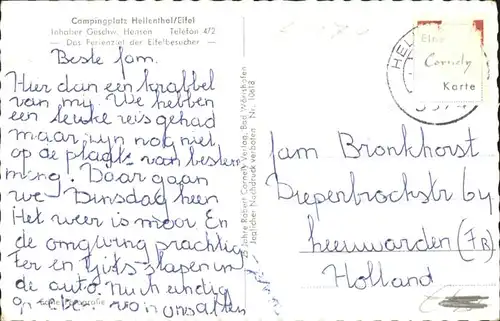 Campingplatz Hellenthal/Eifel
Inhaber Geschw. Hensen Telefon 472
— Das Ferienziel der Eifelbesucher —
Beste fam.
Hier dan een krabbel
van my. We hebben
een leuke reis gehad
maar zyn nog niet
op de plaats van bestem
ming. Daar gaan
we Dinsdag heen
Het weer is mooi En
de omgeving prachtig
Ter en Gijts slapen in
de auto.
op
van ons allen
25 Jahre Robert Cornely Verlag, Bad Wörishofen
Jeglicher Nachdruck verboten Nr. 10618
HEL
Eine
Cornely
Karte
fam Bronkhorst
Diepenbrockstr 64
Leeuwarden (FR)
Holland